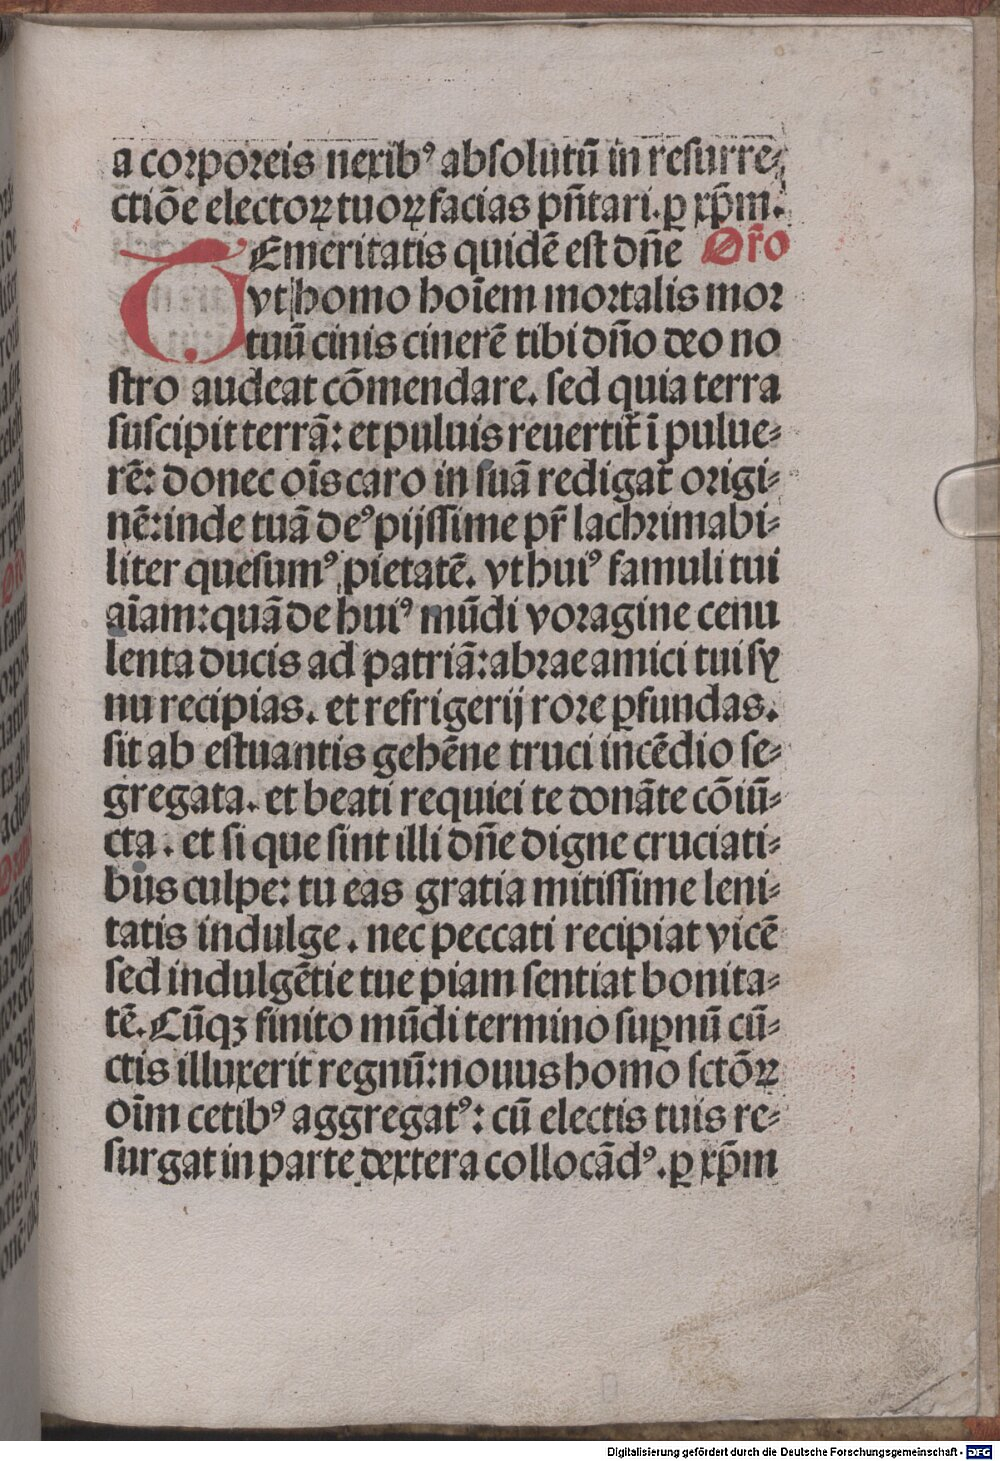 a corporeis nexibꝰ absolutū in resurre-
ctiōe electoꝝ tuoꝝ facias pn̄tari. ꝑ xp̄m.
TEmeritatis quidē est dn̄e Or̄o
vt homo hoīem mortalis mor
tuū cinis cinerē tibi dn̄o deo no
stro audeat cōmendare. sed quia terra
suscipit terrā: et puluis reuertit̄ ī pulue-
rē: donec oīs caro in suā redigat̄ origi-
nē: inde tuā deꝰ pijssime pr̄ lachrimabi-
liter quesumꝰ pietatē. vt huiꝰ famuli tui
aīam: quā de huiꝰ mūdi voragine cenu
lenta ducis ad patriā: abrae amici tui sy
nu recipias. et refrigerij rore ꝑfundas.
sit ab estuantis gehēne truci incēdio se-
gregata. et beati requiei te donāte cōiū-
cta. et si que sint illi dn̄e digne cruciati-
bus culpe: tu eas gratia mitissime leni-
tatis indulge. nec peccati recipiat vicē
sed indulgētie tue piam sentiat bonita-
tē. Cūqꝫ finito mūdi termino suꝑnū cū-
ctis illuxerit regnū: nouus homo sctōꝝ
oīm cetibꝰ aggregatꝰ: cū electis tuis re-
surgat in parte dextera collocādꝰ. ꝑ xp̄m
Digitalisierung gefördert durch die Deutsche Forschungsgemeinschaft - DFG